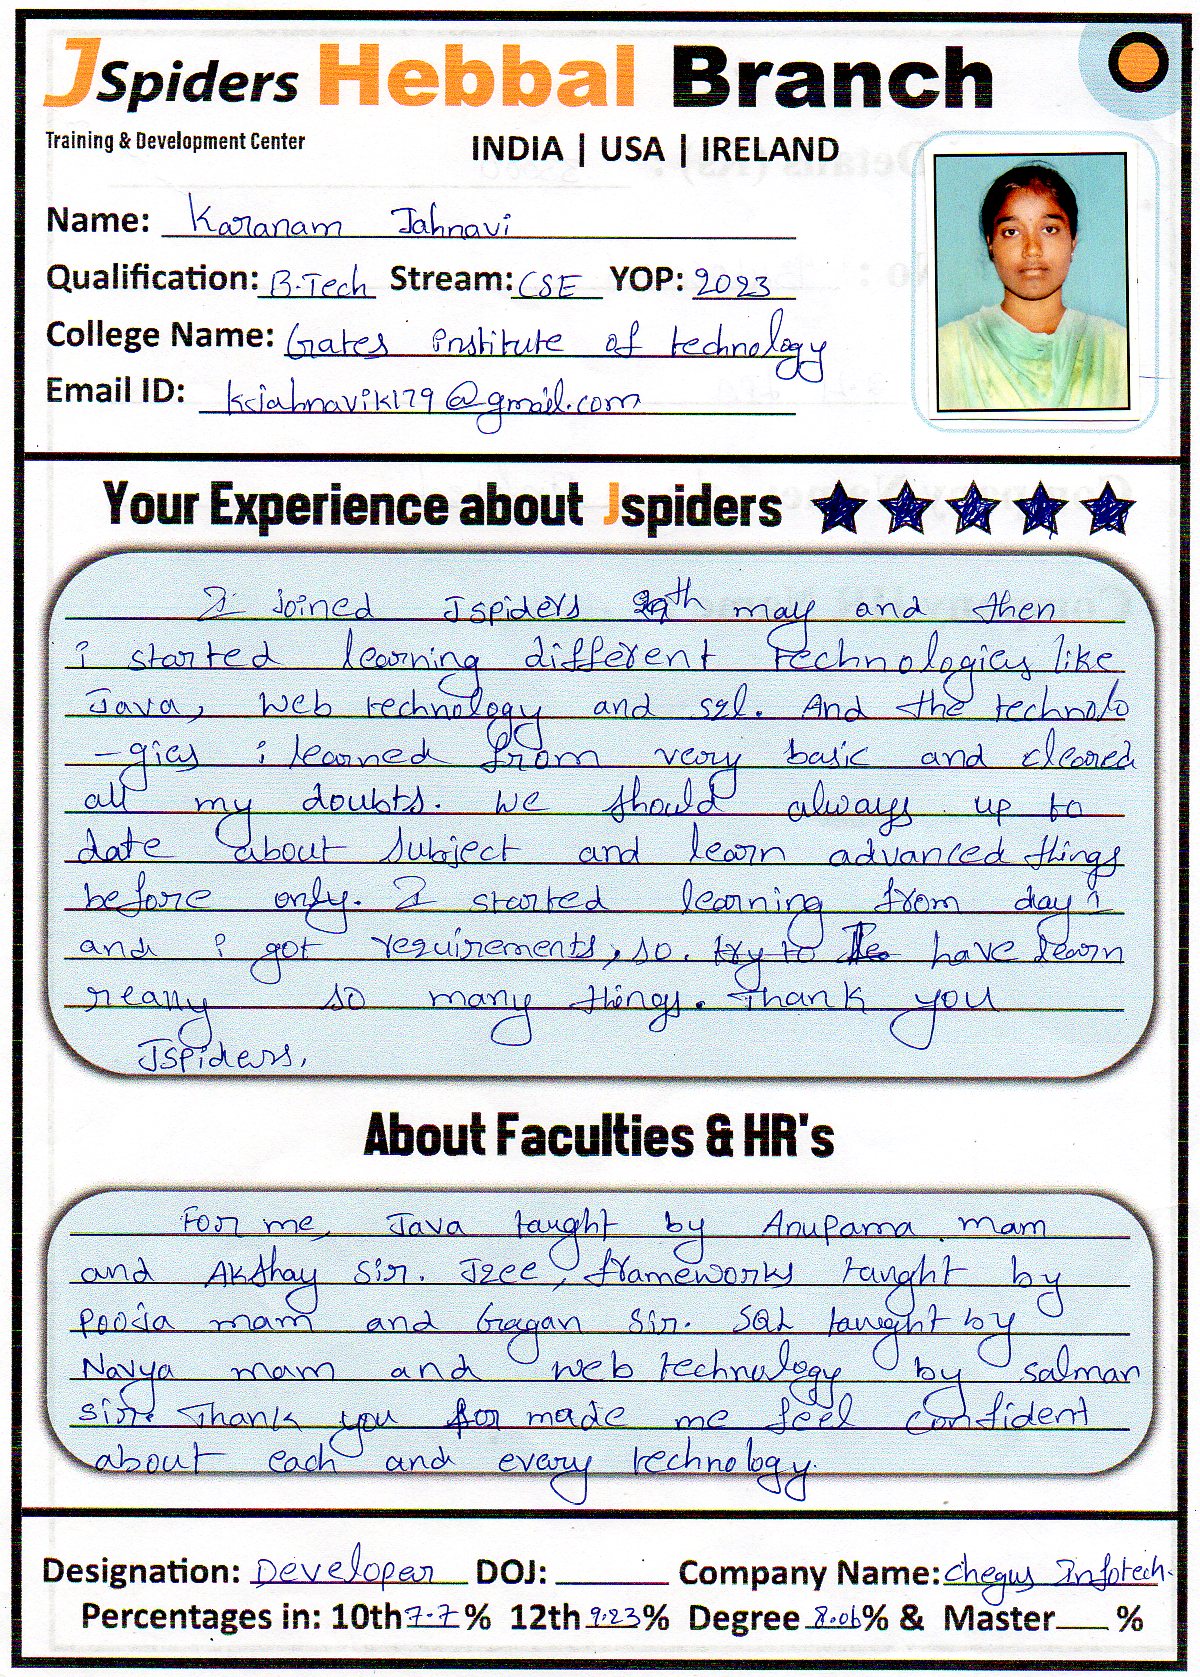 JSpiders Hebbal Branch
Training & Development Center
INDIA | USA | IRELAND
Name: Karanam Jahnavi
Qualification: B.Tech Stream: CSE YOP: 2023
College Name: Gates institute of technology
Email ID: ksjahnavik179@gmail.com
Your Experience about Jspiders
I joined Jspiders 29th may and then
i started learning different technologies like
Java, Web technology and sql. And the technolo
-gies i learned from very basic and cleared
all my doubts. We should always up to
date about subject and learn advanced things
before only. I started learning from day 1
and i got requirements, so. try to have learn
really so many things. Thank you
Jspiders,
About Faculties & HR's
For me, Java taught by Anupama mam
and Akshay Sir. J2ee, frameworks taught by
pooja mam and Gagan Sir. SQL taught by
Navya mam and web technology by salman
sir. Thank you for made me feel confident
about each and every technology.
Designation: Developer DOJ: Company Name: Chegus Infotech.
Percentages in: 10th 7.7% 12th 9.23% Degree 8.06% & Master %